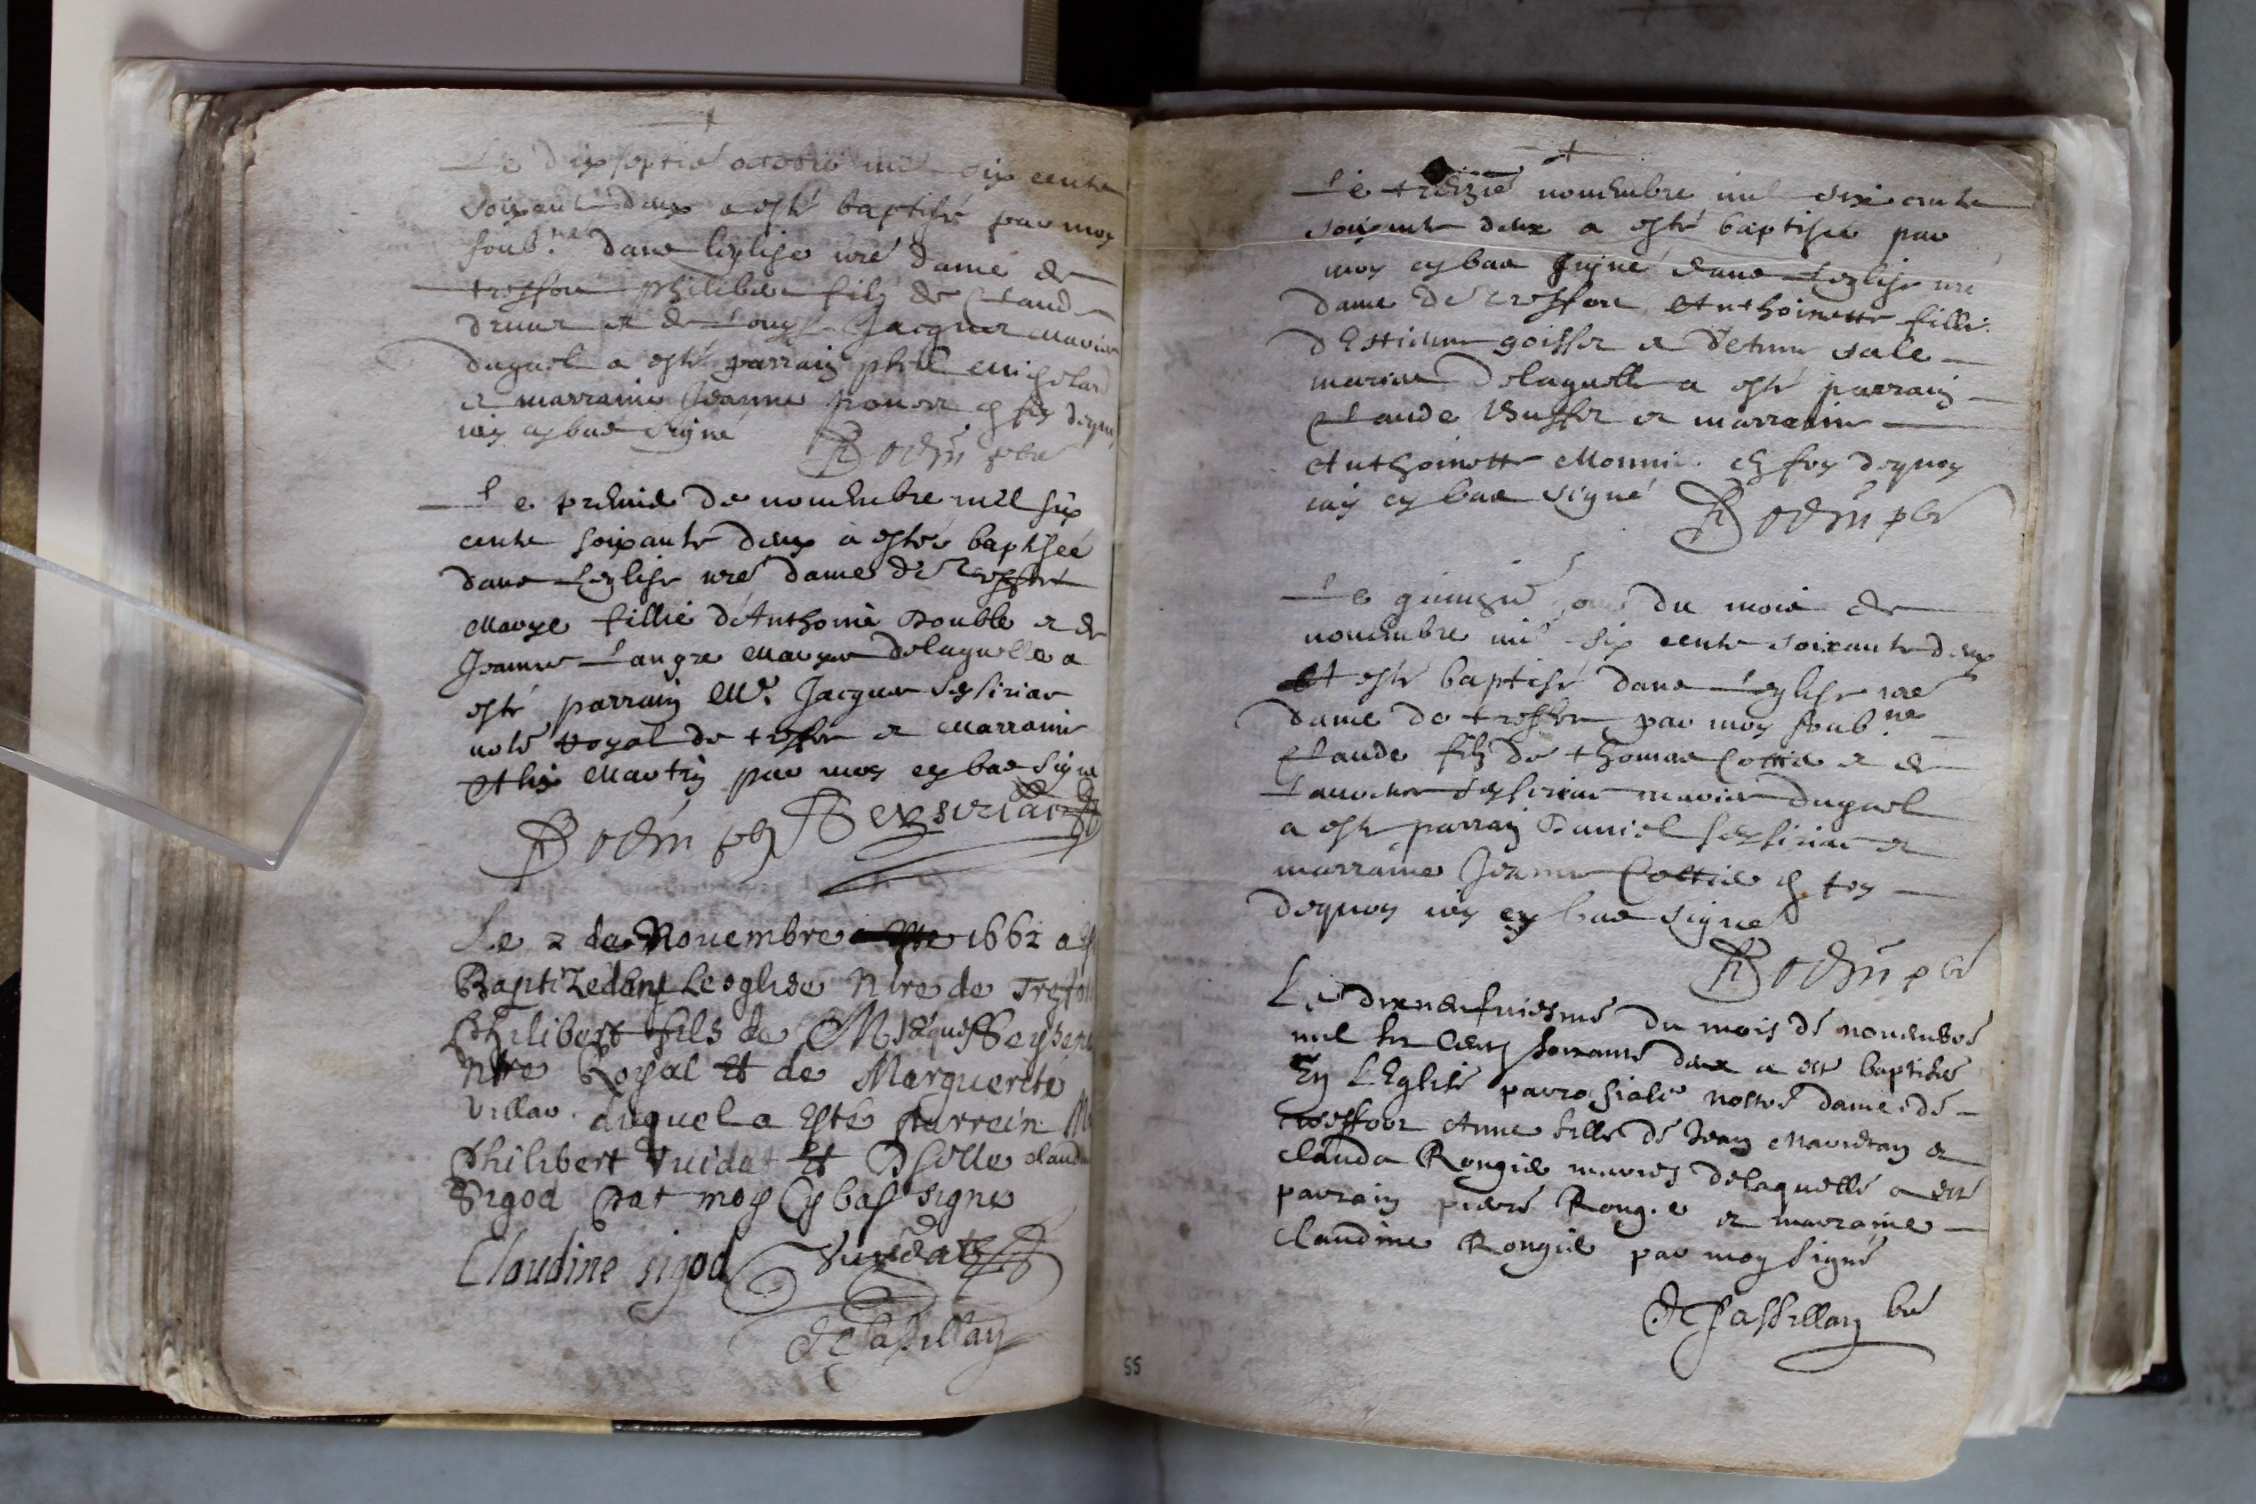 Le dixseptie octobre mil six cents
soixante deux a esté baptisé par moy
soub.né dans leglise nré dame de
treffort philibert filz de Claude
et de Louyse Jacquet mariés
duquel a esté parrain phill. Michelard
et marraine Jeanne en foy dequoy
iay cy bas signé
Bodin pbre
Le premie de nouembre mil six
cents soixante deux a estee baptiseé
dans Leglise nré dame de Treffort
Marye fillie d'Anthoine Double et de
Jeanne Langre Maryes delaquelle a
esté parrain Me. Jacques Seysiriat
noté royal de treffort et Marraine
Martin par moy cy bas signe
Bodin pbr Seyssiriat
Le 2 de Nouembre 1662 a esté
Baptizé dans Leeglise Ntre de Treffort
Philibert fils de M Jacques Seyseriat
Ntre Royal Et de Marguerite
Villar duquel a Esté parrein Me
Philibert Vuidat Et Dhelle claudine
Sigod Par moy Cy bas signe
Claudine sigod Vuidat
De Passillan
55
Le treizie nouembre mil six cents
soixante deux a esté baptisee par
moy cy bas signé dans Leglise nré
dame de Treffort Anthoinette fillie
d'Estienne goiffet et d'etienne sale
mariés delaquelle a esté parrain
Claude Buffet et marraine
Anthoinette Monnie. en foy dequoy
iay cy bas signé
Bodin pbr
Le quinzie iour du mois de
nouembre mil six cents soixante deux
A esté baptisé dans Leglise nré
dame de treffort par moy soub.né
Claude filz de thomas Cottie et de
Laurence Seysiriat mariés duquel
a esté parrain Daniel Seysiriat et
marraine Jeanne Cottie en foy
dequoy iay cy bas signe
Bodin pbr
Le dixneufuiesme du mois de nouembre
mil six Cens soixante deux a esté baptisée
En LEglise parrosiale nostre dame de
treffort Anne fille de Jean Mavietan et
Clauda Rongie mariés delaquelle a esté
parrain pierre Rongie et marraine
Claudine Rongie par moy signé
De Passillan br